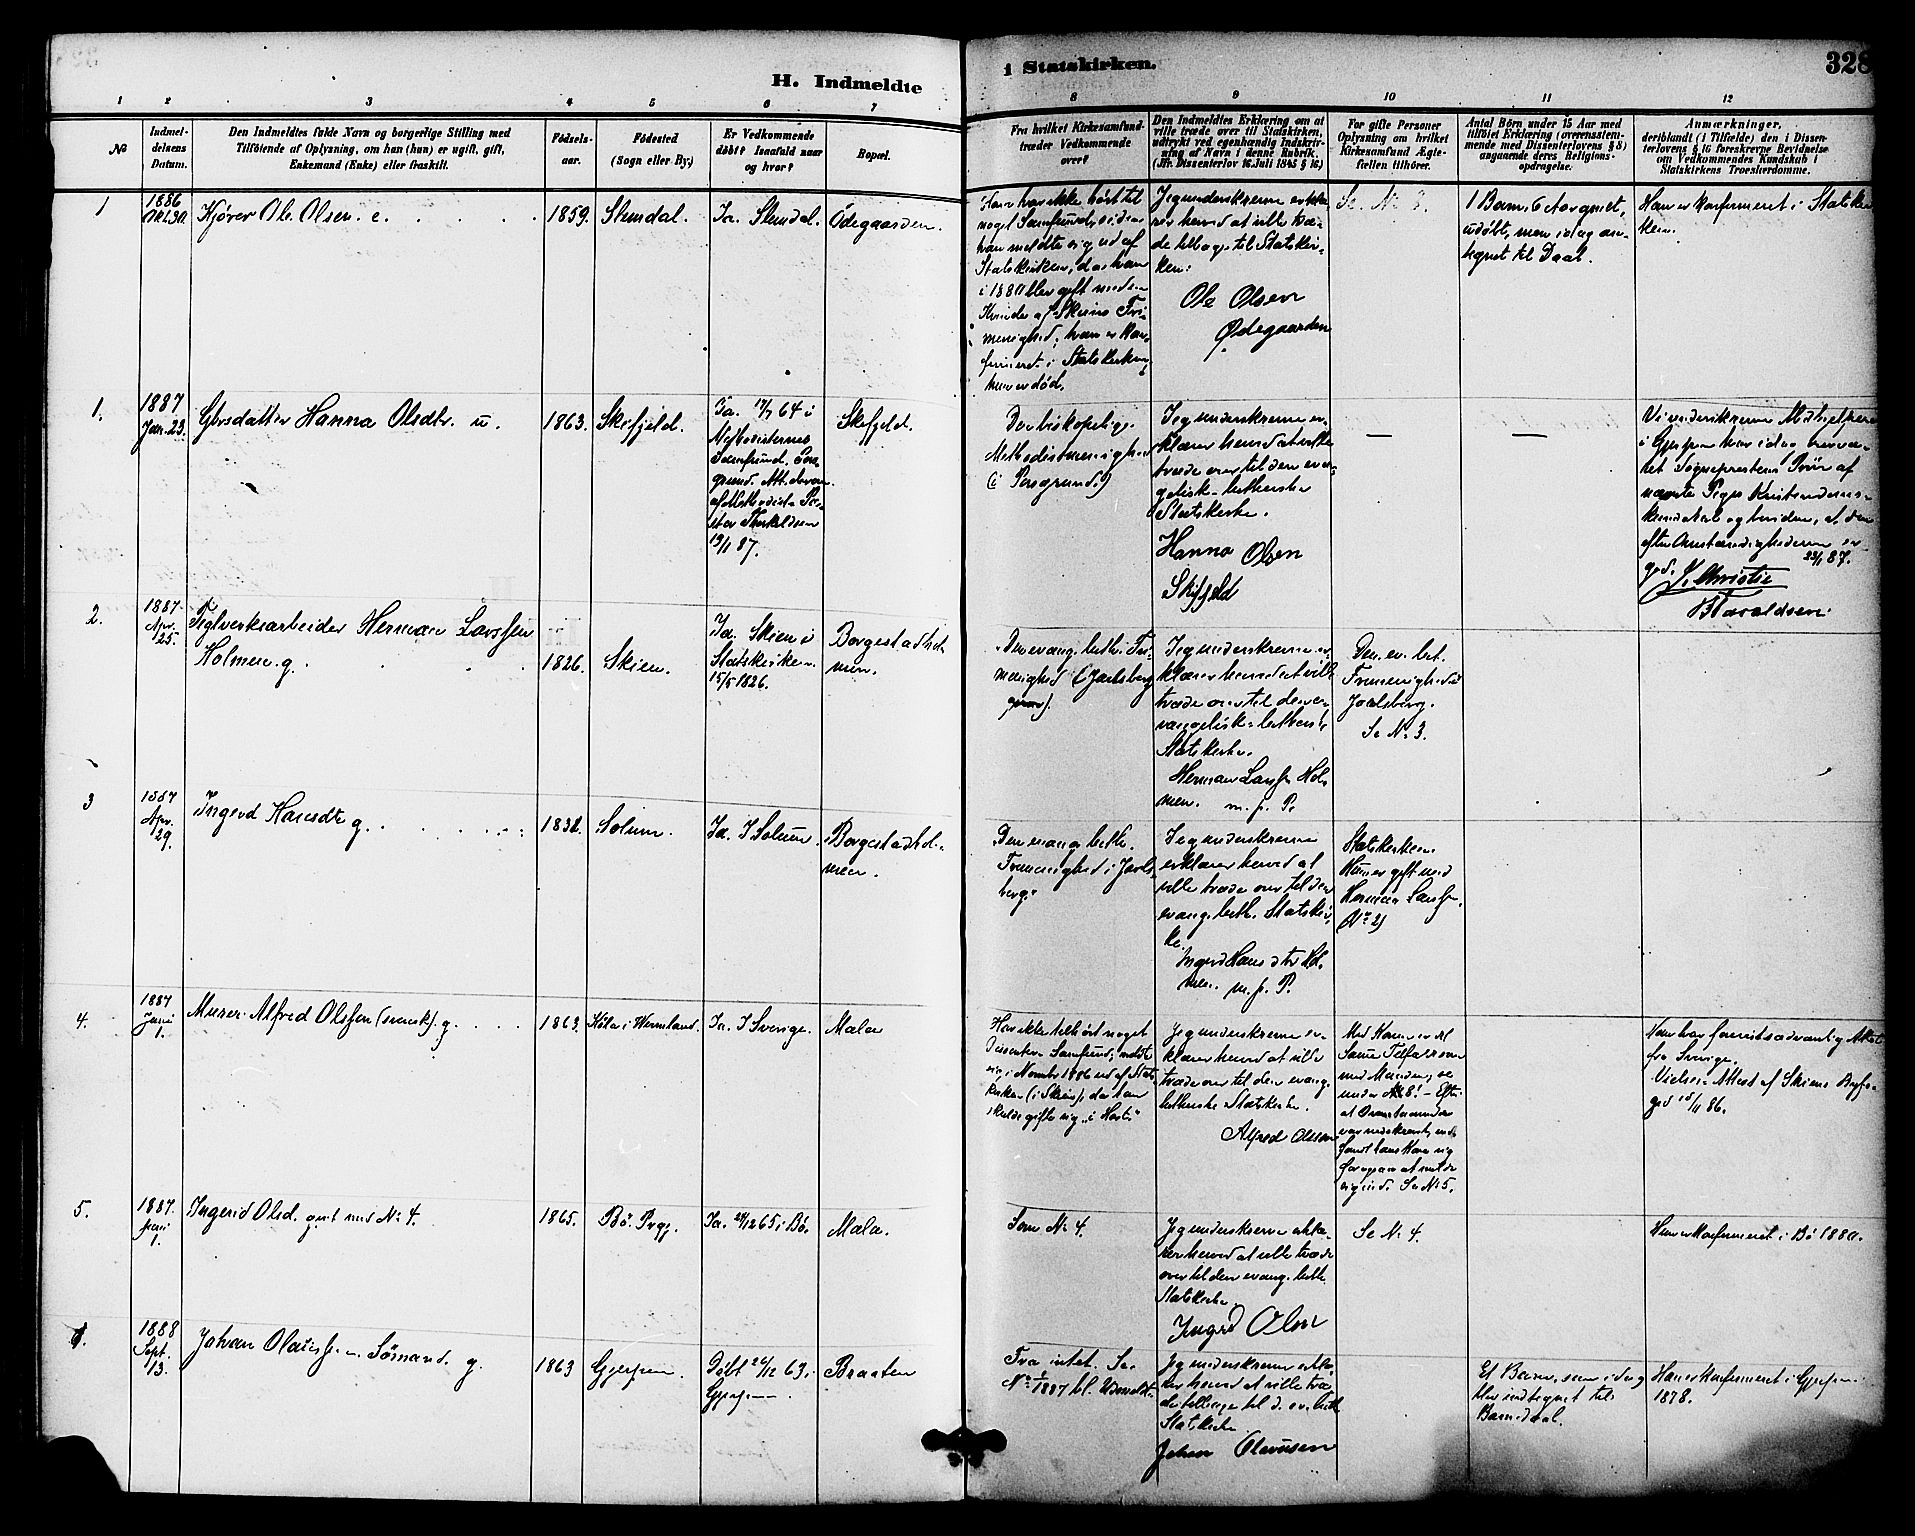 H. Indmeldte
i Statskirken.
328
1 2 3 4 5 6 7
8 9 10 11 12
No
Indmel-
delsens
Datum.
Den Indmeldtes fulde Navn og borgerlige Stilling med
Tilföiende af Oplysning, om han (hun) er ugift, gift,
Enkemand (Enke) eller fraskilt.
Födsels-
aar.
Födested
(Sogn eller By.)
Er Vedkommende
döbt? Isaafald naar
og hvor?
Bopæl.
Fra hvilket Kirkesamfund
træder Vedkommende
over?
Den Indmeldtes Erklæring om at
ville træde over til Statskirken,
udtrykt ved egenhændig Indskriv-
ning af Navn i denne Rubrik.
(Jfr. Dissenterlov 16 Juli 1845 § 16)
For gifte Personer
Oplysning om hvilket
Kirkesamfund Ægte-
fællen tilhörer.
Antal Börn under 15 Aar med
tilföiet Erklæring (overensstem-
mende med Dissenterlovens § 8)
angaaende deres Religions-
opdragelse.
Anmærkninger,
deriblandt (i Tilfælde) den i Dissen-
terlovens § 16 foreskrevne Bevidnelse
om Vedkommendes Kundskab i
Statskirkens Troeslærdomme.
1
1886
Okt. 30.
Kjörer Ole Olsen. e.
1859.
Slemdal.
Ja. Slemdal.
Ödegaarden.
Han har ikke hört til
noget Samfund, siden
han meldte sig ud af
Statskirken, da han
i 1880 blev gift med en
Kvinde af Skiens Fri-
menighed; han er kon-
firmeret i Statskirken,
hun er död.
Jeg underskrevne erklæ-
rer herved at ville træ-
de tilbage til Statskir-
ken:
Ole Olsen
Ødegaarden
Se No
1 Barn, 6 Aar gmlt,
udöbt, men idag an-
tegnet til Daab.
Han er konfirmeret i Statskir-
ken.
1.
1887
Jan. 23.
Hanna Olsdtr. u.
1863.
Skifjeld.
Ja. 17/7 64 i
Methodisternes
Samfund, Pors-
grund. Att. derom
af Methodist-Pa-
stor Thorkildsen
19/1 87.
Skifjeld.
Den biskopelige
Methodistmenighed
(i Porsgrund)
Jeg underskrevne er-
klærer herved at ville
træde over til den evan-
gelisk-lutherske
Statskirke.
Hanna Olsen
Skifjeld
—
—
Vi underskrevne Medhjelpere
i Gjerpen har idag overvæ-
ret Sogneprestens Pröve af
nævnte Piges Kristendoms-
kundskab og bevidner, at den
efter Omstændighederne er
god. 23/1 87.
J. Christie
B Haraldsen.
2.
1887
Apr.
25.
Teglverksarbeider Herman Larssen
Holmen g.
1826.
Skien.
Ja. Skien i
Statskirken
15/5 1826.
Borgestadhol-
men.
Den evang. luth. Fri-
menighed (Jarlsberg
Jeg underskrevne er-
klærer herved at ville
træde over til den e-
vangelisk-lutherske
Statskirke.
Herman Larssen Hol-
men. m. p. P.
Den ev. lut.
Frimenighed i
Jarlsberg.
Se No 3.
3
1887
Apr.
29.
Ingerd Hansdtr g.
1832.
Solum.
Ja. I Solum.
Borgestadhol-
men.
Den evang. luthe.
Frimenighed i Jarls-
berg.
Jeg underskrevne
erklærer herved at
ville træde over til den
evang. luth. Statskir-
ke.
Ingerd Hansdtr Hol-
men. m. p. P.
Statskirken.
Hun er gift med
Herman Larssen
(No 2)
4.
1887
Juni
1.
Murer Alfred Olssen (svensk). g.
1863.
Köla i Wermland.
Ja. I Sverige.
Mæla
Har ikke tilhört noget
Dissenter-Samfund; meldte
sig i Novembr 1886 ud af Stats-
kirken (i Skien), da han
skulde gifte sig "i Hast"
Jeg underskrevne er-
klærer herved at ville
træde over til den evang.
lutherske Statskirke.
Alfred Olssen
Med Konen er det
samme Tilfælde som
med Manden, se
under No 8! - Efter
at Ovenstaaende
var nedskrevet,
fandt hans Kone sig
foranlediget at melde
sig ind. Se No 5.
fra Sverige.
Vielses-Attest af Skiens Byfo-
ged 15/11 86.
5.
1887.
Juni
1.
Ingerid Olsd. gift med No 4.
1865.
Bö.
Ja. 24/12 65 i Bö.
Mæla.
Som No 4.
Jeg underskrevne erklæ-
rer herved at ville træde
over til den evang. luth.
Statskirke.
Ingrd Olsen
Se No 4.
Hun er konfirmeret i Bö 1880.
6.
1888
Sept.
13.
Johan Olaussen Sömand. g.
1863
Gjerpen.
Döbt 26/12 63 i
Gjerpen
Braaten
Fra intet. Se
No 1/1887 bl. Udmeldte
Jeg underskrevne erklæ-
rer herved at ville træ-
de tilbage til d. ev. luth
Statskirke
Johan Olaussen
Et Barn, som idag
blev indtegnet til
Barnedaab.
Han er konfirmeret i Gjerpen
1878.